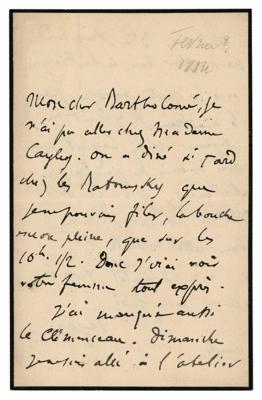 Fevrier ?
1884
Mon cher Bartholomé, je
n'ai pu aller chez Madame
Cayley. on a diné si tard
chez les Ratowsky que
je ne pouvais filer, la bouche
encore pleine, que sur les
10h. 1/2. Donc j'irai voir
votre femme tout exprès.
J'ai manqué aussi
le Clémenceau. Dimanche
je suis allé à l'atelier